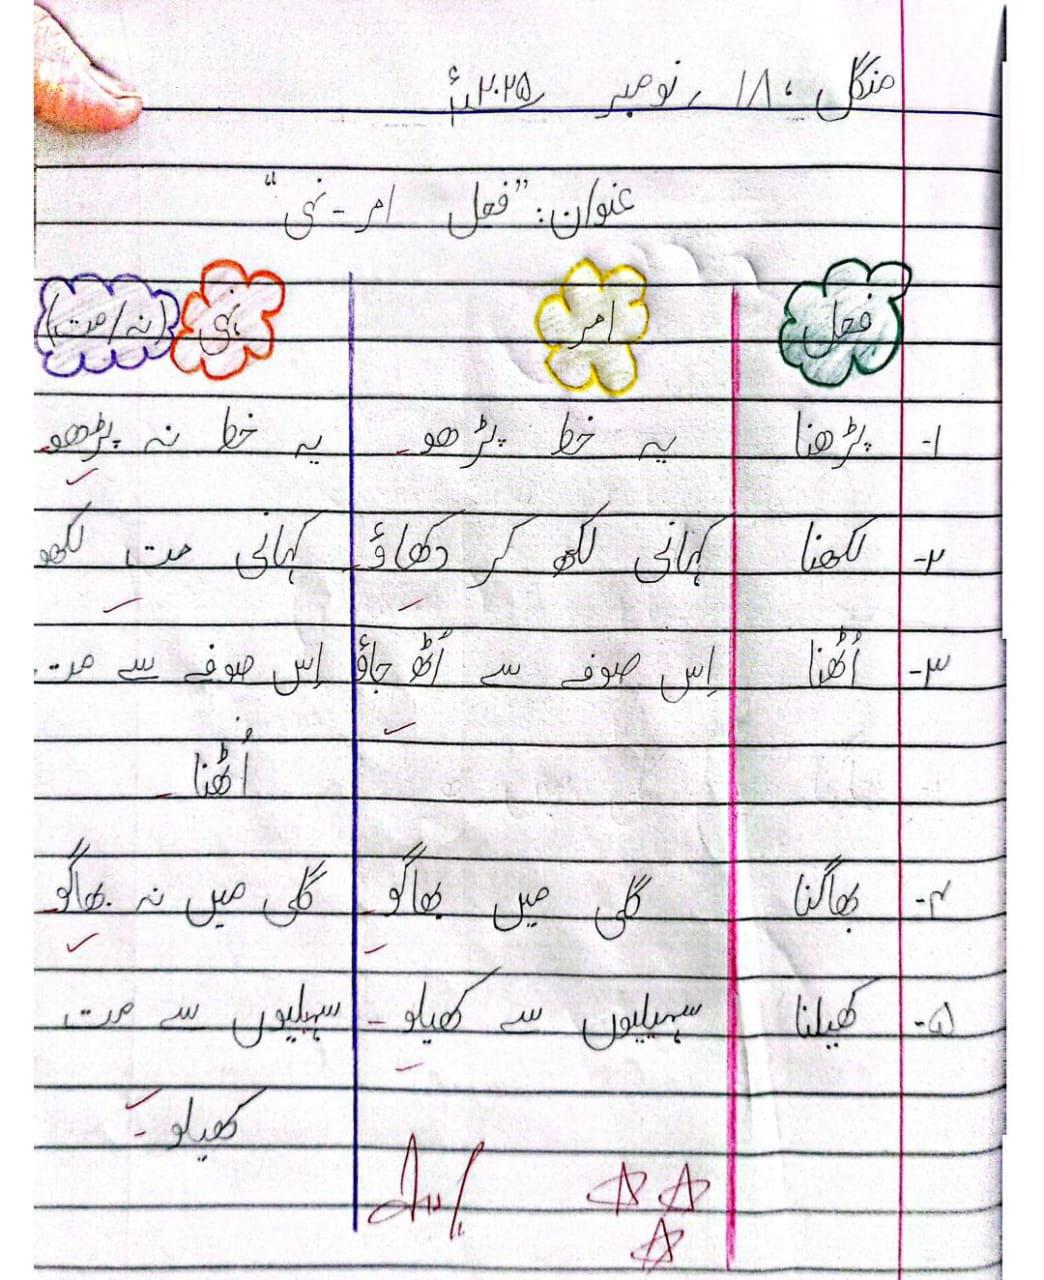 منگل ، ۱۸ نومبر ۲۰۲۵ء
عنوان: "فعل امر - نہی"
فعل امر نہی (نہ/مت)
۱- پڑھنا یہ خط پڑھو۔ یہ خط نہ پڑھو۔
۲- لکھنا کہانی لکھ کر دکھاؤ۔ کہانی مت لکھو
۳- اُٹھنا اِس صوفے سے اُٹھ جاؤ اِس صوفے سے مت
اُٹھنا۔
۴- بھاگنا گلی میں بھاگو۔ گلی میں نہ بھاگو۔
۵- کھیلنا سہیلیوں سے کھیلو۔ سہیلیوں سے مت
کھیلو۔